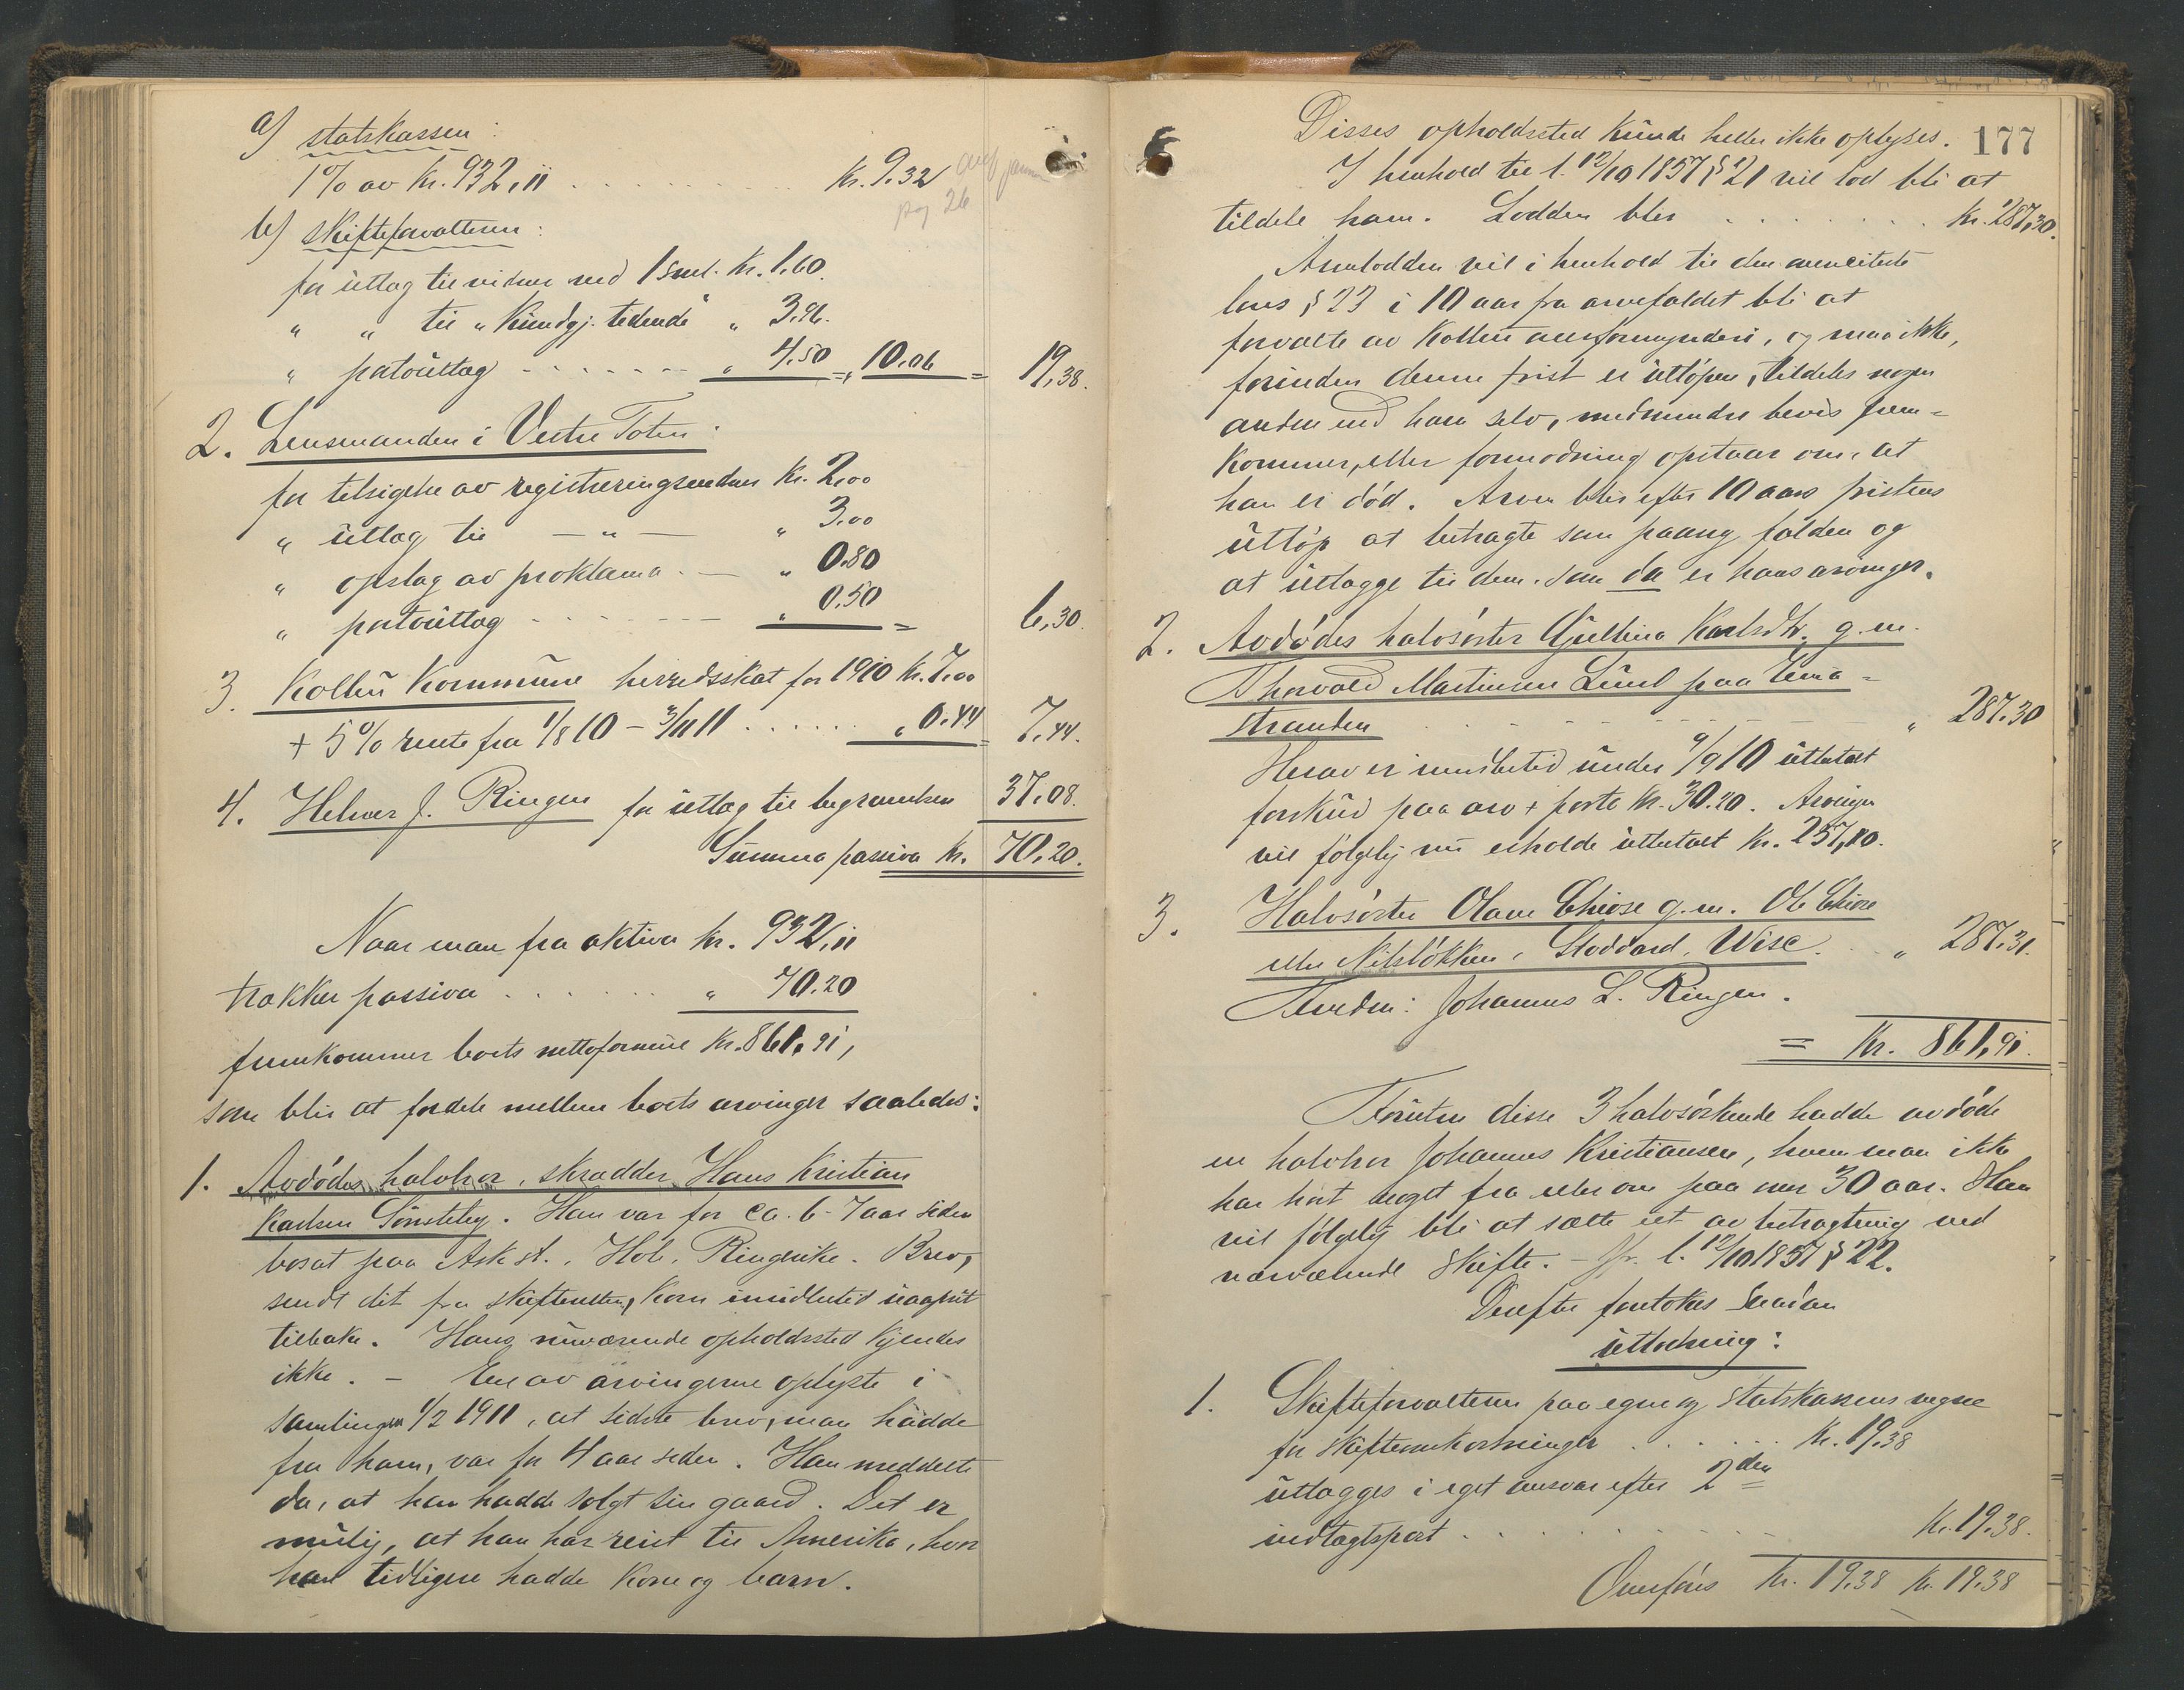 a) statskassen:
1% av Kr. 932,11 . . . . . . . . . Kr. 9.32
pag 26
b) skifteforvalteren:
for utlæg til vidner ved 1 saml. Kr. 1.60.
" " til "Kundgj. tidende" " 3.96.
" portoutlæg - - - - - - " 4.50 = " 10.06 = 19,38.
2. Lensmanden i Vestre Toten:
for tilsigelse av registreringsvidner Kr. 2,00
" utlæg til — " — " 3.00
" opslag av proklama. — " 0.80
" portoutlæg - - - - - - " 0.50 = 6,30.
3. Kolbu Kommune herredsskat for 1910 Kr. 7.00
+ 5% rente fra 1/8 10 - 3/11 11 . . . . . . " 0.44 = 7.44.
4. Helmer J. Ringen for utlæg til begravelsen 37.08.
Summa passiva Kr. 70.20.
Naar man fra aktiva kr. 932,11
trækker passiva . . . . . . " 70.20
fremkommer boets nettoformue Kr. 861,91,
som blir at fordele mellem boets arvinger saaledes:
1. Avdødes halvbror, skrædder Hans Kristian
Karlsen Sønsteby. Han var for ca. 6-7 aar siden
bosat paa Ask st., Hole, Ringerike. Brev,
sendt dit fra skifteretten, kom imidlertid uaapnet
tilbake. Hans nuværende opholdssted kjendes
ikke. - En av arvingerne oplyste i
samlingen 1/2 1911, at sidste brev, man hadde
fra ham, var for 4 aar siden. Han meddelte
da, at han hadde solgt sin gaard. Det er
mulig, at han har reist til Amerika, hvor
han tidligere hadde kone og barn.
177
Disses opholdssted kunde heller ikke oplyses.
I henhold til l. 12/10 1857 § 21 vil lod bli at
tildele ham. Lodden blir . . . . . . . . Kr. 287,30.
Arvelodden vil i henhold til den ovenciterte
lovs § 23 i 10 aar fra arvefaldet bli at
forvalte av Kolbu overformynderi, og maa ikke,
forinden denne frist er utløpen, tildeles nogen
anden end ham selv, medmindre bevis frem-
kommer, eller formodning opstaar om, at
han er død. Arven blir efter 10 aars fristens
utløp at betragte som paany falden og
at utlægge til dem, som da er hans arvinger.
2. Avdødes halvsøster Gjullina Karlsdtr. g.m.
Thorvald Martinsen Lund paa Eina-
stranden - - - - - - - - - " 287.30
Herav er imidlertid under 9/9 10 utbetalt
forskud paa arv + porto Kr. 30.20. Arvingen
vil følgelig nu erholde utbetalt Kr. 257,10.
3. Halvsøster Olave Chiose g.m. Ole Chiose
eller Nilsløkken, Stoddard, Wisc. . " 287.31.
Tverdm: Johannes L. Ringen.
= Kr. 861,91.
Foruten disse 3 halvsøskende hadde avdøde
en halvbror Johannes Kristiansen, hvem man ikke
har hørt noget fra eller om paa over 30 aar. Han
vil følgelig bli at sætte ut av betragtning ved
nærværende skifte. - Jfr. l. 12/10 1857 § 22.
Derefter foretokes saadan
utlodning:
1. Skifteforvalteren paa egne og statskassens vegne
for skifteomkostninger . . . . . Kr. 19.38
utlægges i eget ansvar efter 2den
indtægtspost . . . . . . . . Kr. 19.38.
Overføres Kr. 19.38 Kr. 19.38